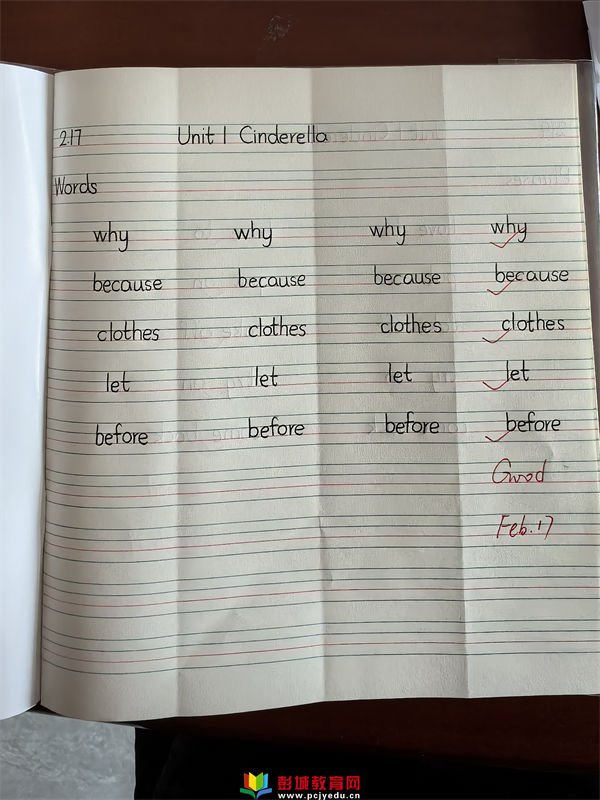 2.17 Unit 1 Cinderella
Words
why why why why
because because because because
clothes clothes clothes clothes
let let let let
before before before before
Good
Feb.17
彭城教育网
www.pcjyedu.cn